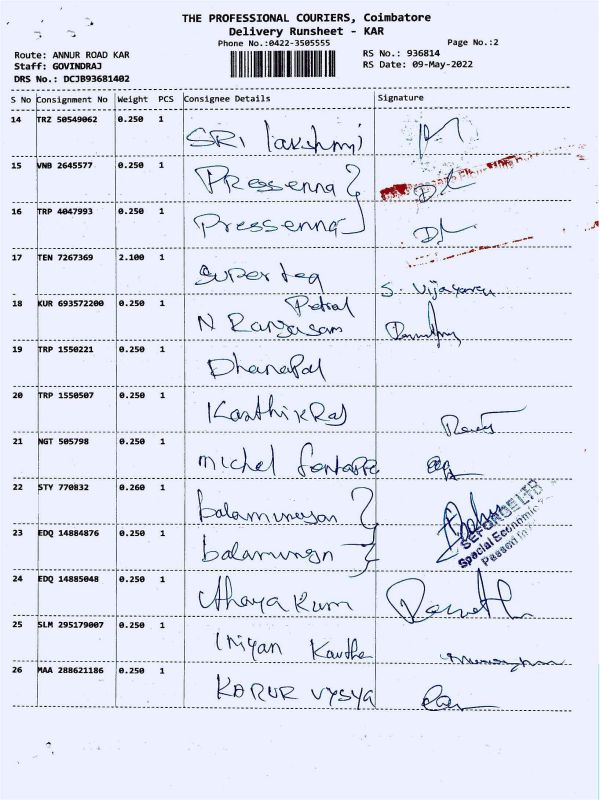 THE PROFESSIONAL COURIERS, Coimbatore
Delivery Runsheet - KAR
Phone No.:0422-3505555
Page No.:2
Route: ANNUR ROAD KAR
RS No.: 936814
Staff: GOVINDRAJ
RS Date: 09-May-2022
DRS No.: DCJB93681402
S No Consignment No Weight PCS Consignee Details Signature
14 TRZ 50549062 0.250 1 SRI lakshmi
15 VNB 2645577 0.250 1 Pressenna
16 TRP 4047993 0.250 1 Pressenna
17 TEN 7267369 2.100 1 Super teq S. Vijayaragu
18 KUR 693572200 0.250 1 N Rangasam
19 TRP 1550221 0.250 1 Dhanapal
20 TRP 1550507 0.250 1 Karthik Raj
21 NGT 505798 0.250 1 michel
22 STY 770832 0.260 1 balamurugan
SEFORGE LTD
Special Economic
Passed in
23 EDQ 14884876 0.250 1 balamurugn
24 EDQ 14885048 0.250 1 Uthaya Kum
25 SLM 295179007 0.250 1 Iniyan
26 MAA 288621186 0.250 1 KARUR VYSYA